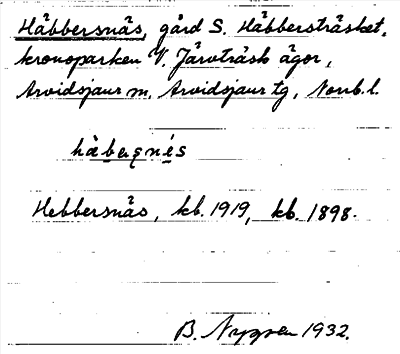 Häbbersnäs, gård S. Häbbersträsket,
kronoparken V. Järvträsk ägor,
Arvidsjaur sn, Arvidsjaur tg, Norrb. l.
häbeʂnés
Hebbersnäs, kb. 1919, kb. 1898.
B. Nygren 1932.